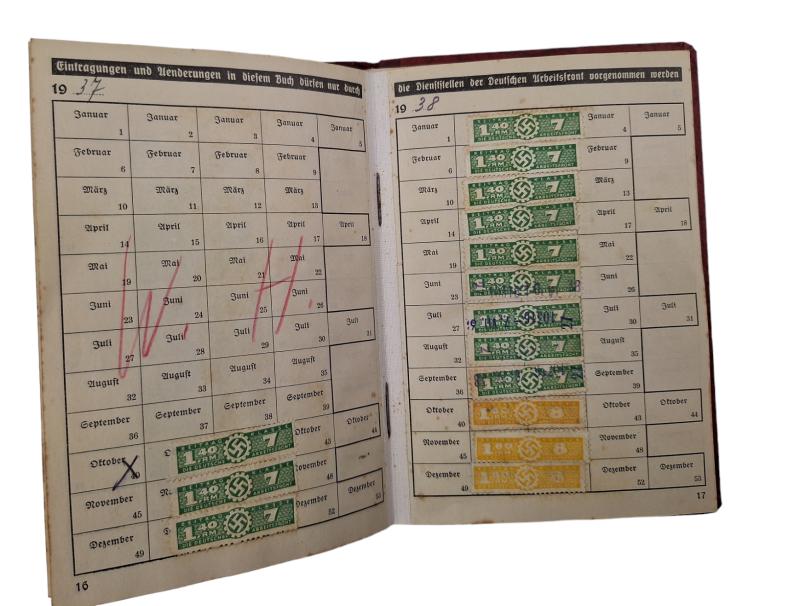 Eintragungen und Aenderungen in diesem Buch dürfen nur durch
19 37
Januar Januar Januar Januar Januar
1 2 3 4 5
Februar Februar Februar Februar
6 7 8 9
März März März März
10 11 12 13
April April April April April
14 15 16 17 18
Mai Mai Mai Mai
19 20 21 22
Juni Juni Juni Juni
23 24 25 26
W. H.
Juli Juli Juli Juli Juli
27 28 29 30 31
August August August August
32 33 34 35
September September September
36 37 38
Oktober X 1.40 7 Oktober
40 43 44
November 1.40 7
45 48
Dezember 1.40 7 Dezember Dezember
49 DIE DEUTSCHE ARBEITSFRONT 52 53
16
die Dienststellen der Deutschen Arbeitsfront vorgenommen werden
19 38
Januar 1.40 7 Januar Januar
1 DIE DEUTSCHE ARBEITSFRONT 4 5
Februar 1.40 7 Februar
6 9
März 1.40 7 März
10 13
April 1.40 7 April April
14 17 18
Mai 1.40 7 Mai
19 22
Juni 1.40 7 Juni
23 26
Juli 7 Juli Juli
27 30 31
August 1.40 7 August
32 35
September 1.40 September
36 39
Oktober 8 Oktober Oktober
40 43 44
November 8 November
45 48
Dezember 8 Dezember Dezember
49 52 53
17